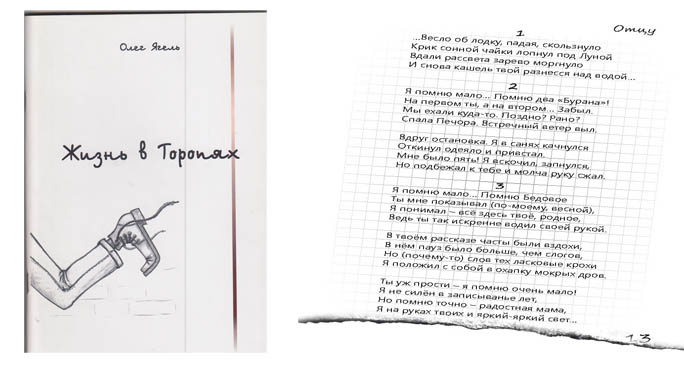 Олег Ягель
Жизнь в Торопях
Отцу
1
...Весло об лодку, падая, скользнуло
Крик сонной чайки лопнул под Луной
Вдали рассвета зарево моргнуло
И снова кашель твой разнесся над водой...
2
Я помню мало... Помню два «Бурана»!
На первом ты, а на втором... Забыл.
Мы ехали куда-то. Поздно? Рано?
Спала Печора. Встречный ветер выл.
Вдруг остановка. Я в санях качнулся
Откинул одеяло и привстал.
Мне было пять! Я вскочил, запнулся,
Но подбежал к тебе и молча руку сжал.
3
Я помню мало... Помню Бедовое
Ты мне показывал (по-моему, весной),
Я понимал – всё здесь твоё, родное,
Ведь ты так искренне водил своей рукой.
В твоём рассказе часты были вздохи,
В нём пауз было больше, чем слогов,
Но (почему-то) слов тех ласковые крохи
Я положил с собой в охапку мокрых дров.
Ты уж прости – я помню очень мало!
Я не силён в записыванье лет,
Но помню точно – радостная мама,
Я на руках твоих и яркий-яркий свет...
13